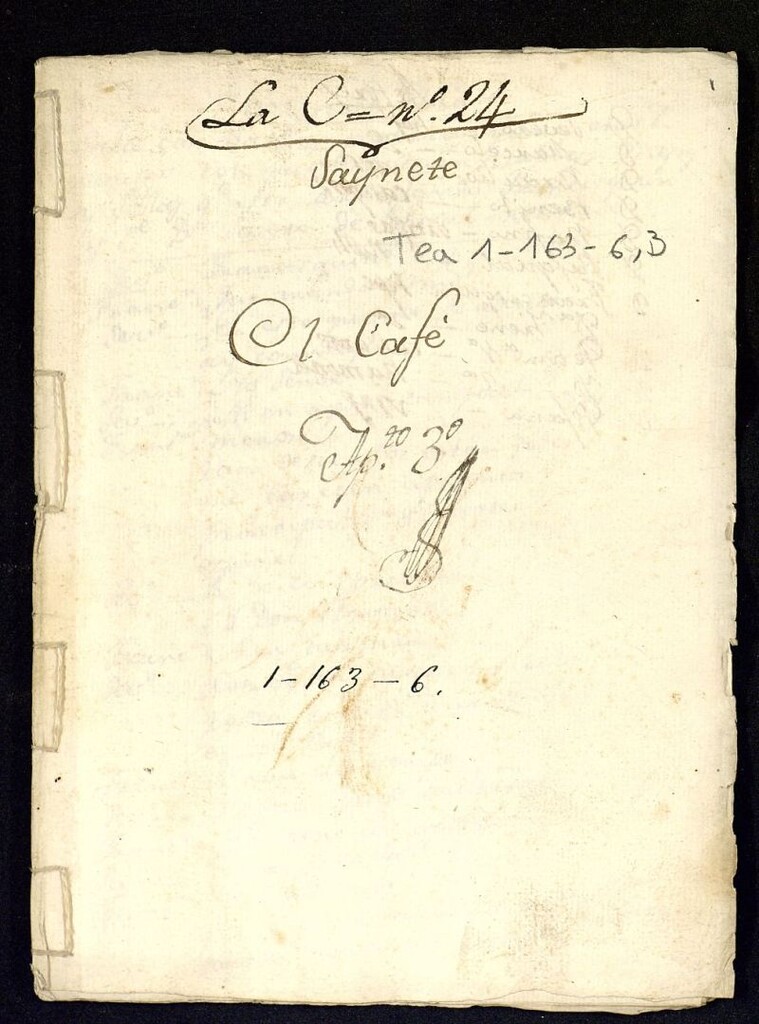 La C = nº. 24
Saynete
Tea 1-163-6, B
El Café
Ap.to 3º
1-163-6.